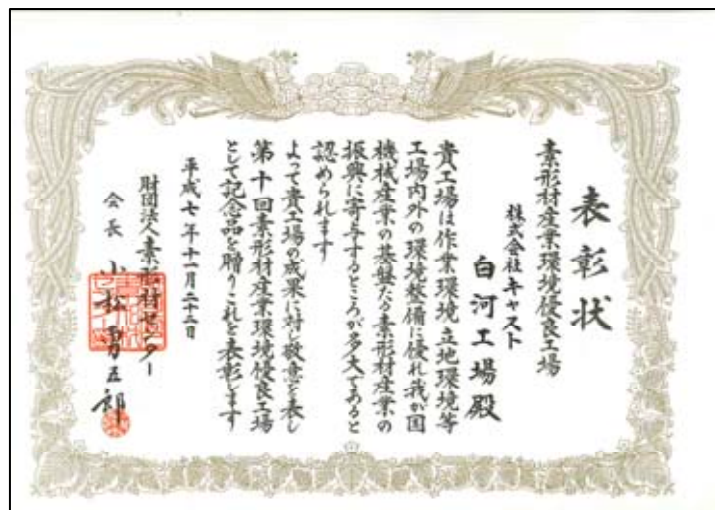 表彰状
素形材産業環境優良工場
株式会社キャスト
白河工場殿
貴工場は作業環境立地環境等
工場内外の環境整備に優れ我が国
機械産業の基盤たる素形材産業の
振興に寄与するところが多大であると
認められます
よって貴工場の成果に対し敬意を表し
第十回素形材産業環境優良工場
として記念品を贈りこれを表彰します
平成七年十一月二十二日
財団法人素形材センター
会長 小松勇五郎